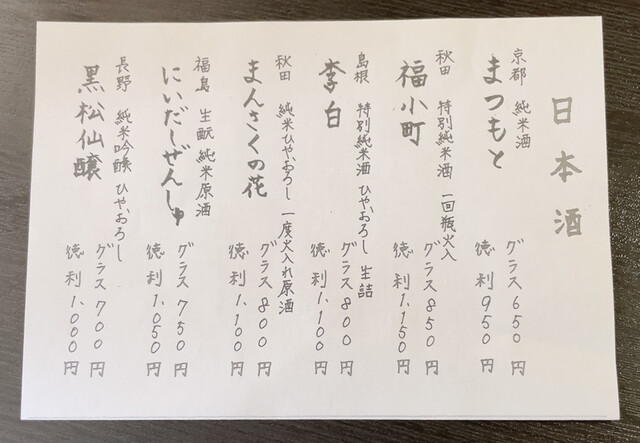 日本酒
京都 純米酒
まつもと
グラス650円
徳利950円
秋田 特別純米酒 一回瓶火入
福小町
グラス850円
徳利1,150円
島根 特別純米酒 ひやおろし 生詰
李白
グラス800円
徳利1,100円
秋田 純米ひやおろし 一度火入れ原酒
まんさくの花
グラス800円
徳利1,100円
福島 生酛 純米原酒
にいだしぜんしゅ
グラス750円
徳利1,050円
長野 純米吟醸 ひやおろし
黒松仙醸
グラス700円
徳利1,000円